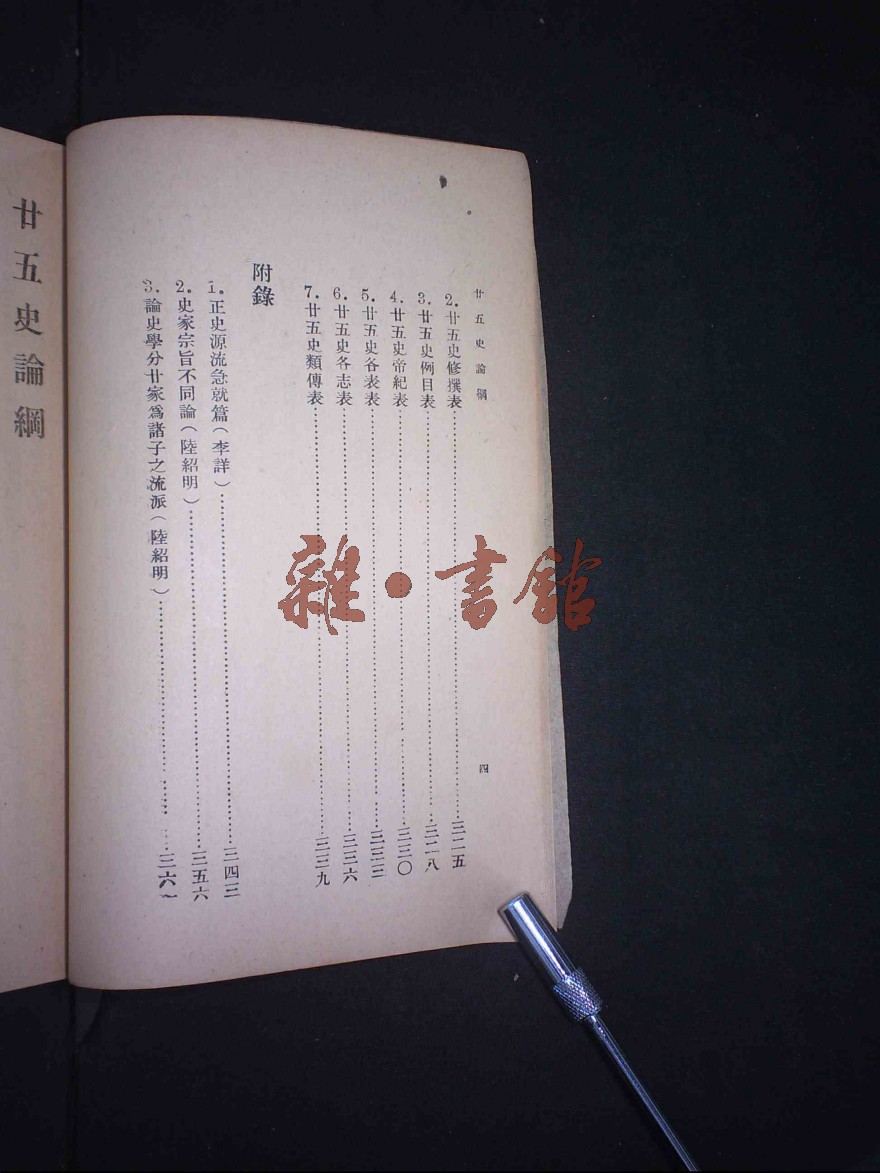 廿五史論綱
四
2.廿五史修撰表……三二五
3.廿五史例目表……三二八
4.廿五史帝紀表……三三〇
5.廿五史各表表……三三三
6.廿五史各志表……三三六
7.廿五史類傳表……三三九
附錄
1.正史源流急就篇(李詳)……三四三
2.史家宗旨不同論(陸紹明)……三五六
3.論史學分廿家爲諸子之流派(陸紹明)……三六一
廿五史論綱
雜·書館